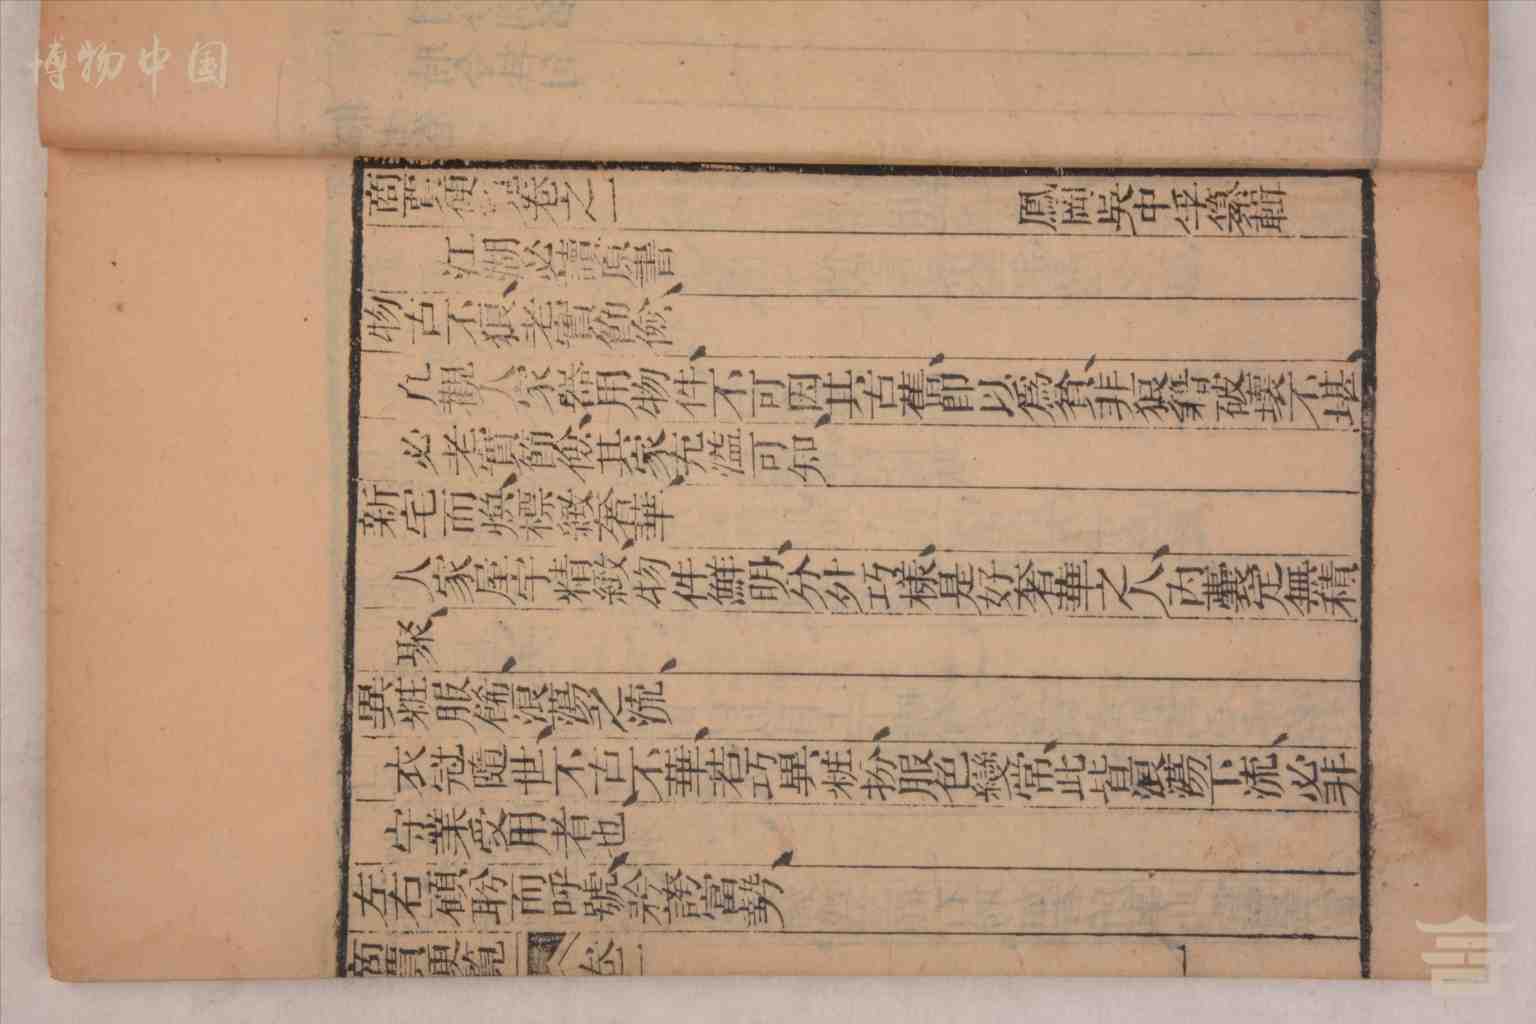 博物中国
商賈便覽卷之一
鳳岡吳中孚纂輯
江湖必讀原書
物古不狼老實節儉
凡觀人家器用物件不可因其古舊卽以爲貧非狠藉破壞不堪
必老實節儉其家充溢可知
新宅而煥標緻奢華
人家屋宇精緻物件鮮明分外巧樣是好奢華之人內囊定無積
聚
異粧服餙浪蕩之流
衣冠隨世不古不華若巧異粧扮服色變常此皆浪蕩下流必非
守業受用者也
左右顧盼而呼號矜誇富勢
商賈便覽
卷一
一